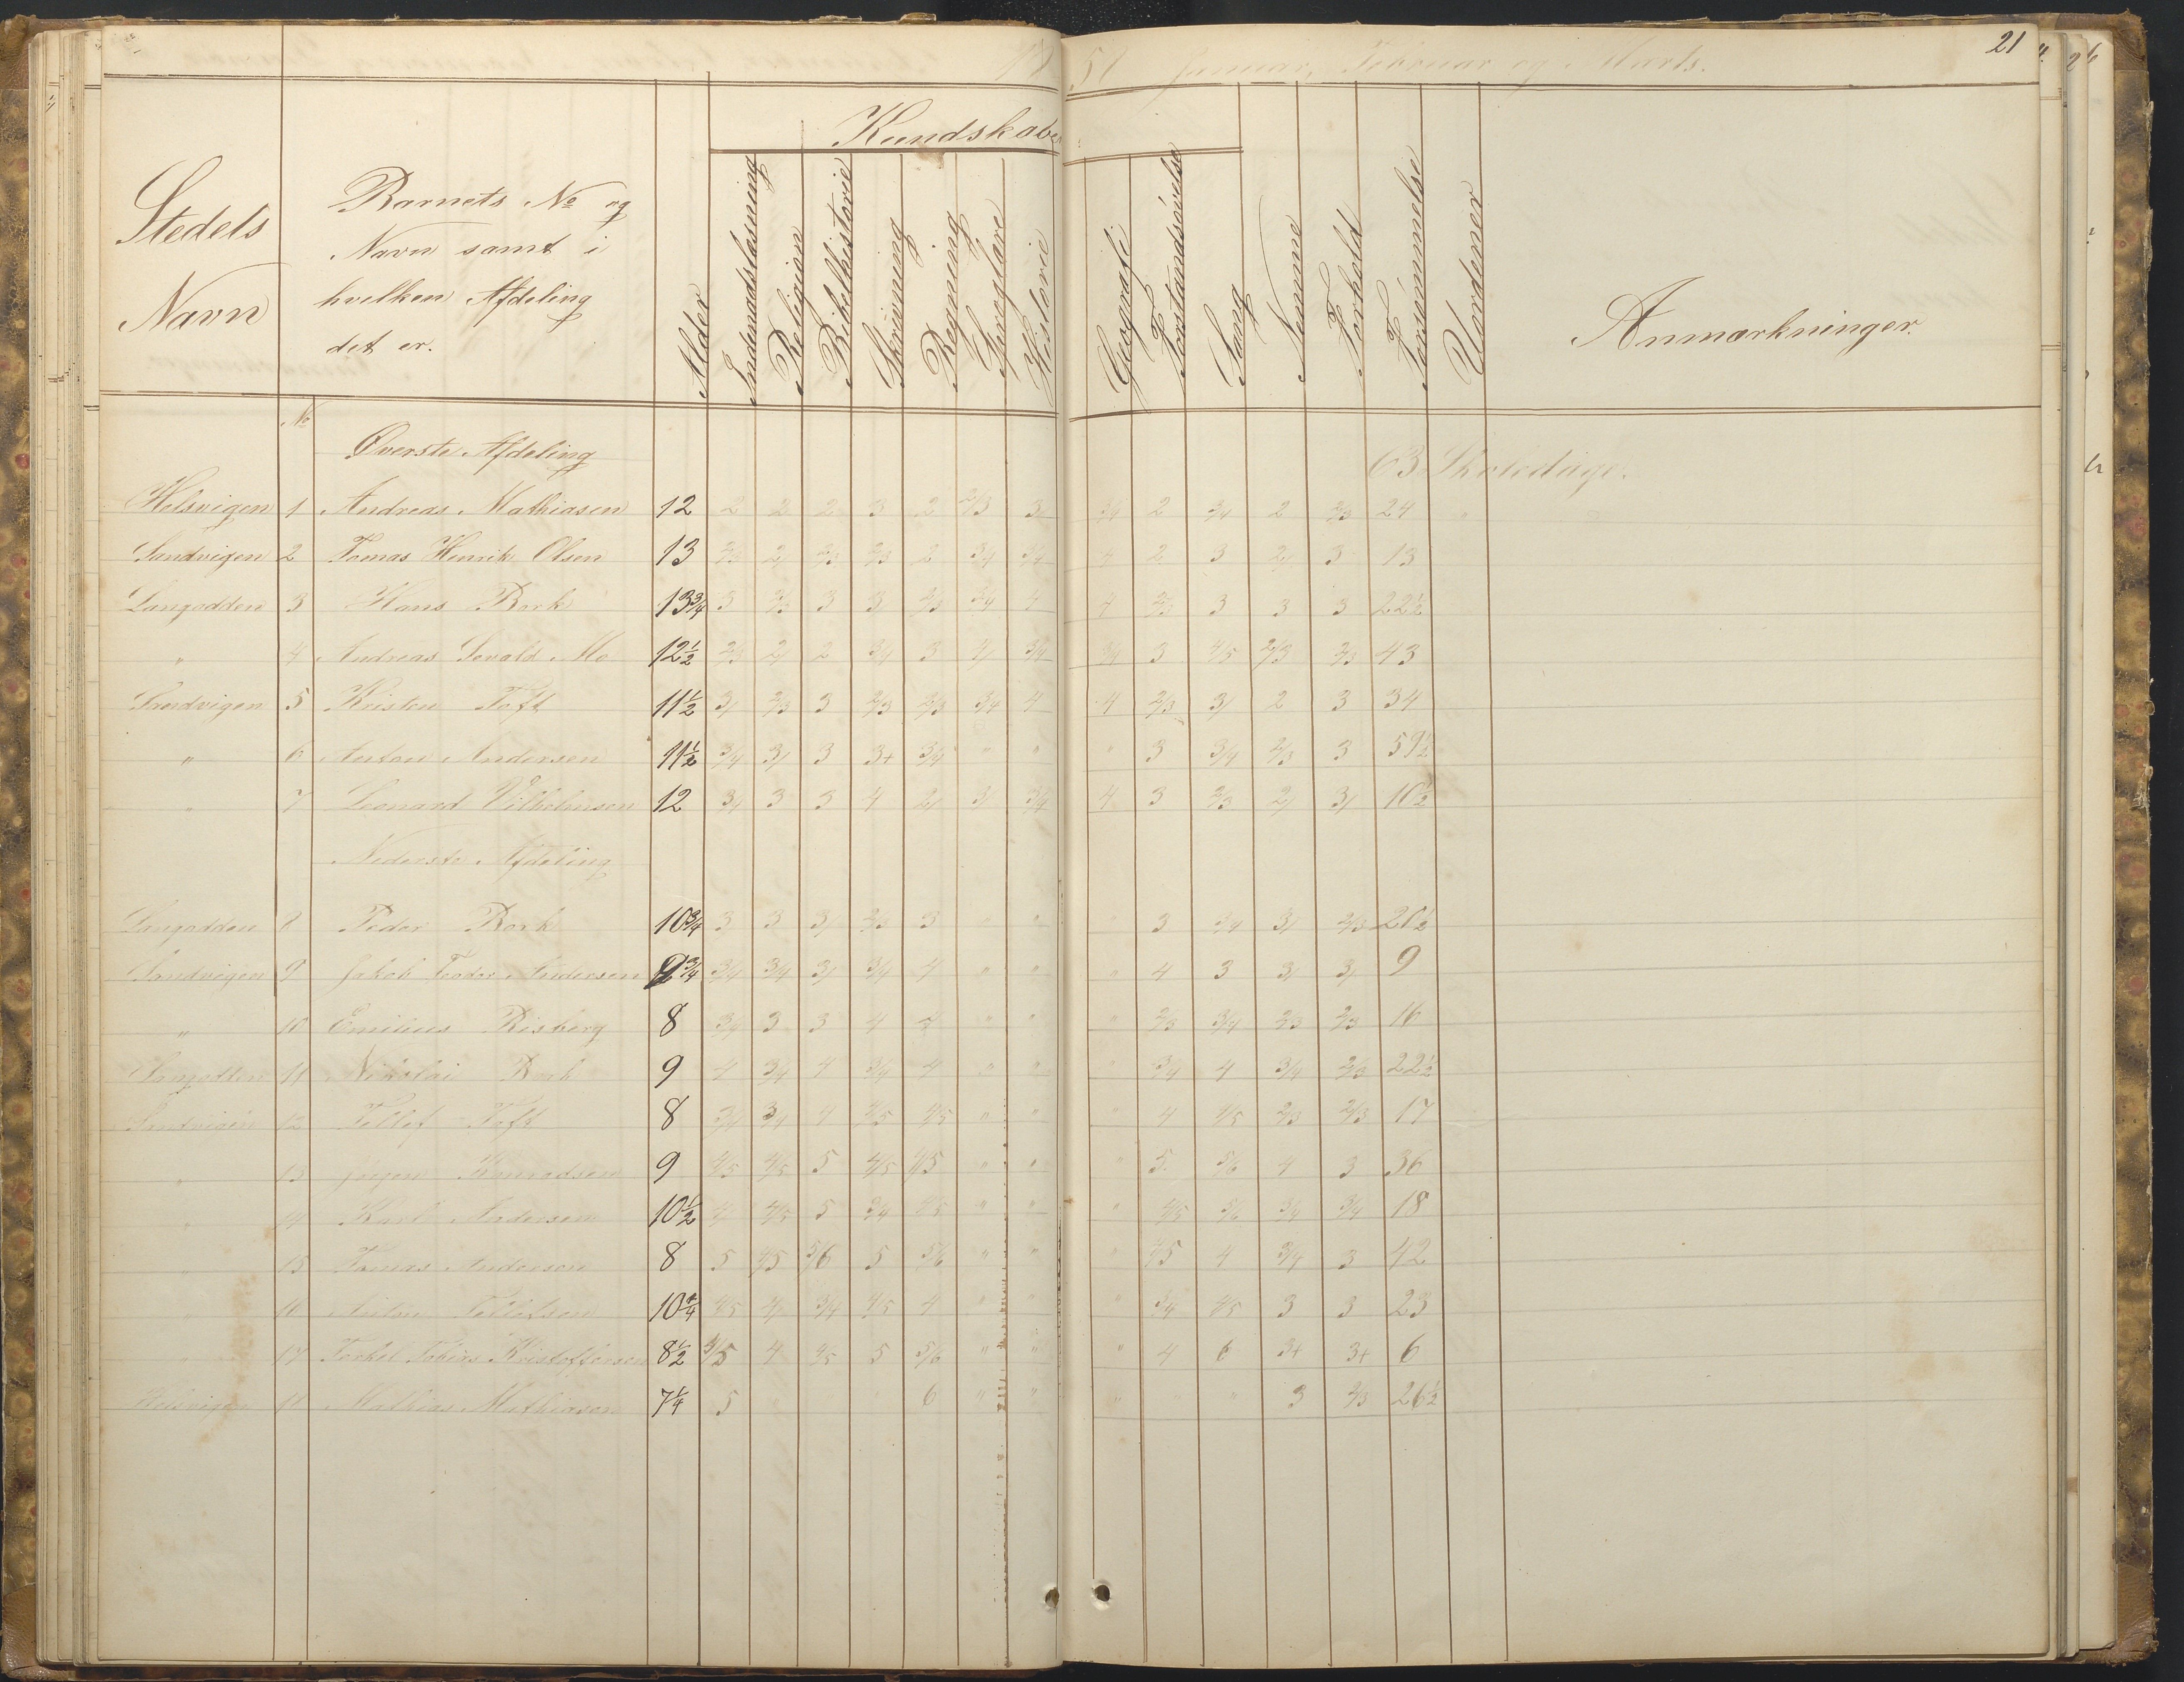 51 Januar, Februar og Marts.
21
Stedets
Navn
Barnets No og
Navn samt i
hvilken Afdeling
det er.
Alder
Kundskaber
Indenadslæsning
Religion
Bibelhistorie
Skrivning
Regning
Sproglære
Historie
Geografi
Forstandsøvelse
Sang
Nemme
Forhold
Forsømmelse
Udordener
Anmærkninger.
No
Øverste Afdeling
63 Skoledage.
Helsvigen 1 Andreas Mathiasen 12 2 2 2 3 2 2/3 3/4 2 3/4 2 2/3 24
Sandvigen 2 Tomas Henrik Olsen 13 2/3 2 2/3 2/3 2 3/4 3/4 4 2 3 2/ 3 13
Langodden 3 Hans Bork 13 3/4 3 2/3 3 3 2/3 3/4 4 4 2/3 3 3 3 22 1/2
" 4 Andreas Sevald Mo 12 1/2 2/3 2/ 2 3/4 3 4/ 3/4 3 4/5 2/3 2/3 43
Sandvigen 5 Kristen Toft 11 1/2 3/ 2/3 3 2/3 2/3 3/4 4 4 2/3 3/ 2 3 34
" 6 Anton Andersen 11 1/2 3/4 3/ 3 3+ 3/4 " " " 3 3/4 2/3 3 59 1/2
" 7 Leonard Vilhelmsen 12 3/4 3 3 4 2/ 3/ 3/4 4 3 2/3 2/ 3/ 10 1/2
Nederste Afdeling
Langodden 8 Peder Bork 10 3/4 3 3 3/ 2/3 3 " " 3 3/4 3/ 2/3
Sandvigen 9 Jakob Teodor Andersen 3/4 3/4 3/4 3/ 3/4 4 " " " 4 3 3/ 3/ 9
" 10 Emilius Risberg 8 3/4 3 3 4 4 " " " 2/3 3/4 2/3 2/3 16
Langodden 11 Nikolai Bork 9 4 3/4 4 3/4 4 " " " 3/4 4 3/4 2/3 22 1/2
Sandvigen 12 Tellef Toft 8 3/4 3/4 4 4/5 4/5 " " " 4 4/5 2/3 2/3 17
" 13 Jørgen Konradsen 9 4/5 4/5 5 4/5 4/5 " " " 5 5/6 4 3 36
" 14 Karl Andersen 10 1/2 4/ 4/5 5 3/4 4/5 " " " 4/5 5/6 3/4 3/4 18
" 15 Tomas Andersen 8 5 4/5 5/6 5 5/6 " " " 4/5 4 3/4 3 42
" 16 Anton Tellefsen 10 1/4 4/5 4/ 3/4 4/5 4 " " " 3/4 4/5 3 3 23
" 17 Torkel Tobias Kristoffersen 8 1/2 4/5 4 4/5 5 5/6 " " " 4 6 3+ 3+ 6
Helsvigen 18 Mathias Mathiasen 7 1/4 5 " " 6 " " " " " 3 2/3 26 1/2